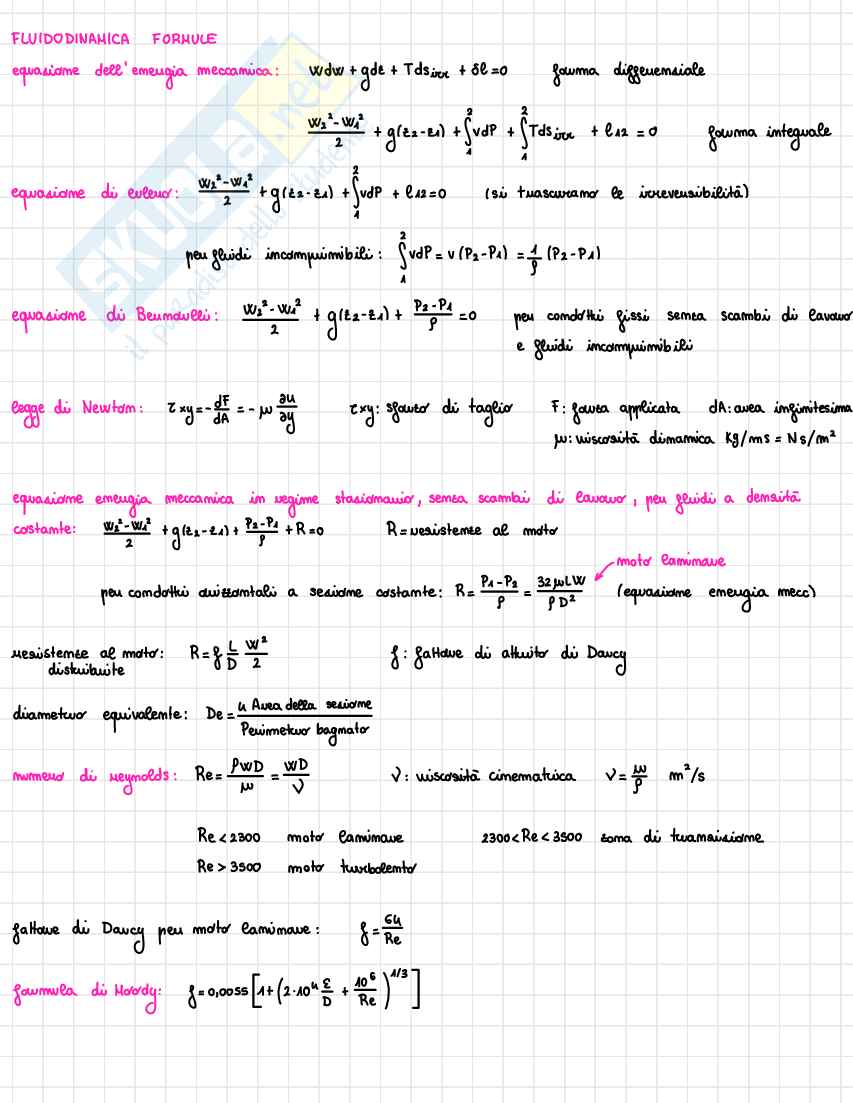 FLUIDODINAMICA FORMULE
equazione dell'energia meccanica: wdw + gdz + Tds irr + δl = 0 forma differenziale
(w₂² - w₁²)/2 + g(z₂ - z₁) + ∫₁² vdP + ∫₁² Tds irr + l₁₂ = 0 forma integrale
equazione di eulero: (w₂² - w₁²)/2 + g(z₂ - z₁) + ∫₁² vdP + l₁₂ = 0 (si trascurano le irreversibilità)
per fluidi incomprimibili: ∫₁² vdP = v(P₂ - P₁) = 1/ρ (P₂ - P₁)
equazione di Bernoulli: (w₂² - w₁²)/2 + g(z₂ - z₁) + (P₂ - P₁)/ρ = 0 per condotti fissi senza scambi di lavoro
e fluidi incomprimibili
legge di Newton: τxy = - dF/dA = - μ ∂u/∂y τxy: sforzo di taglio F: forza applicata dA: area infinitesima
μ: viscosità dinamica Kg/ms = Ns/m²
equazione energia meccanica in regime stazionario, senza scambi di lavoro, per fluidi a densità
costante: (w₂² - w₁²)/2 + g(z₂ - z₁) + (P₂ - P₁)/ρ + R = 0 R = resistenze al moto
moto laminare
per condotti orizzontali a sezione costante: R = (P₁ - P₂)/ρ = 32μLW/ρD² (equazione energia mecc)
resistenze al moto: R = f L/D w²/2 f: fattore di attrito di Darcy
distribuite
diametro equivalente: De = 4 Area della sezione / Perimetro bagnato
numero di reynolds: Re = ρWD/μ = WD/ν ν: viscosità cinematica ν = μ/ρ m²/s
Re < 2300 moto laminare 2300 < Re < 3500 zona di transizione
Re > 3500 moto turbolento
fattore di Darcy per moto laminare: f = 64/Re
formula di Moody: f = 0,0055 [1 + (2·10⁴ ε/D + 10⁶/Re)^1/3]
SKUOLA.net
il paradiso dello studente